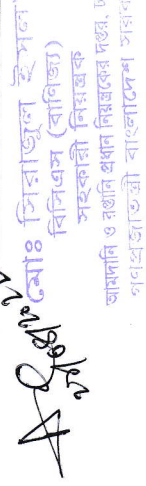 মোঃ সিরাজুল ইসলা
বিসিএস (বাণিজ্য)
সহকারী নিয়ন্ত্রক
আমদানি ও রপ্তানি প্রধান নিয়ন্ত্রকের দপ্তর,
গণপ্রজাতন্ত্রী বাংলাদেশ সরকা